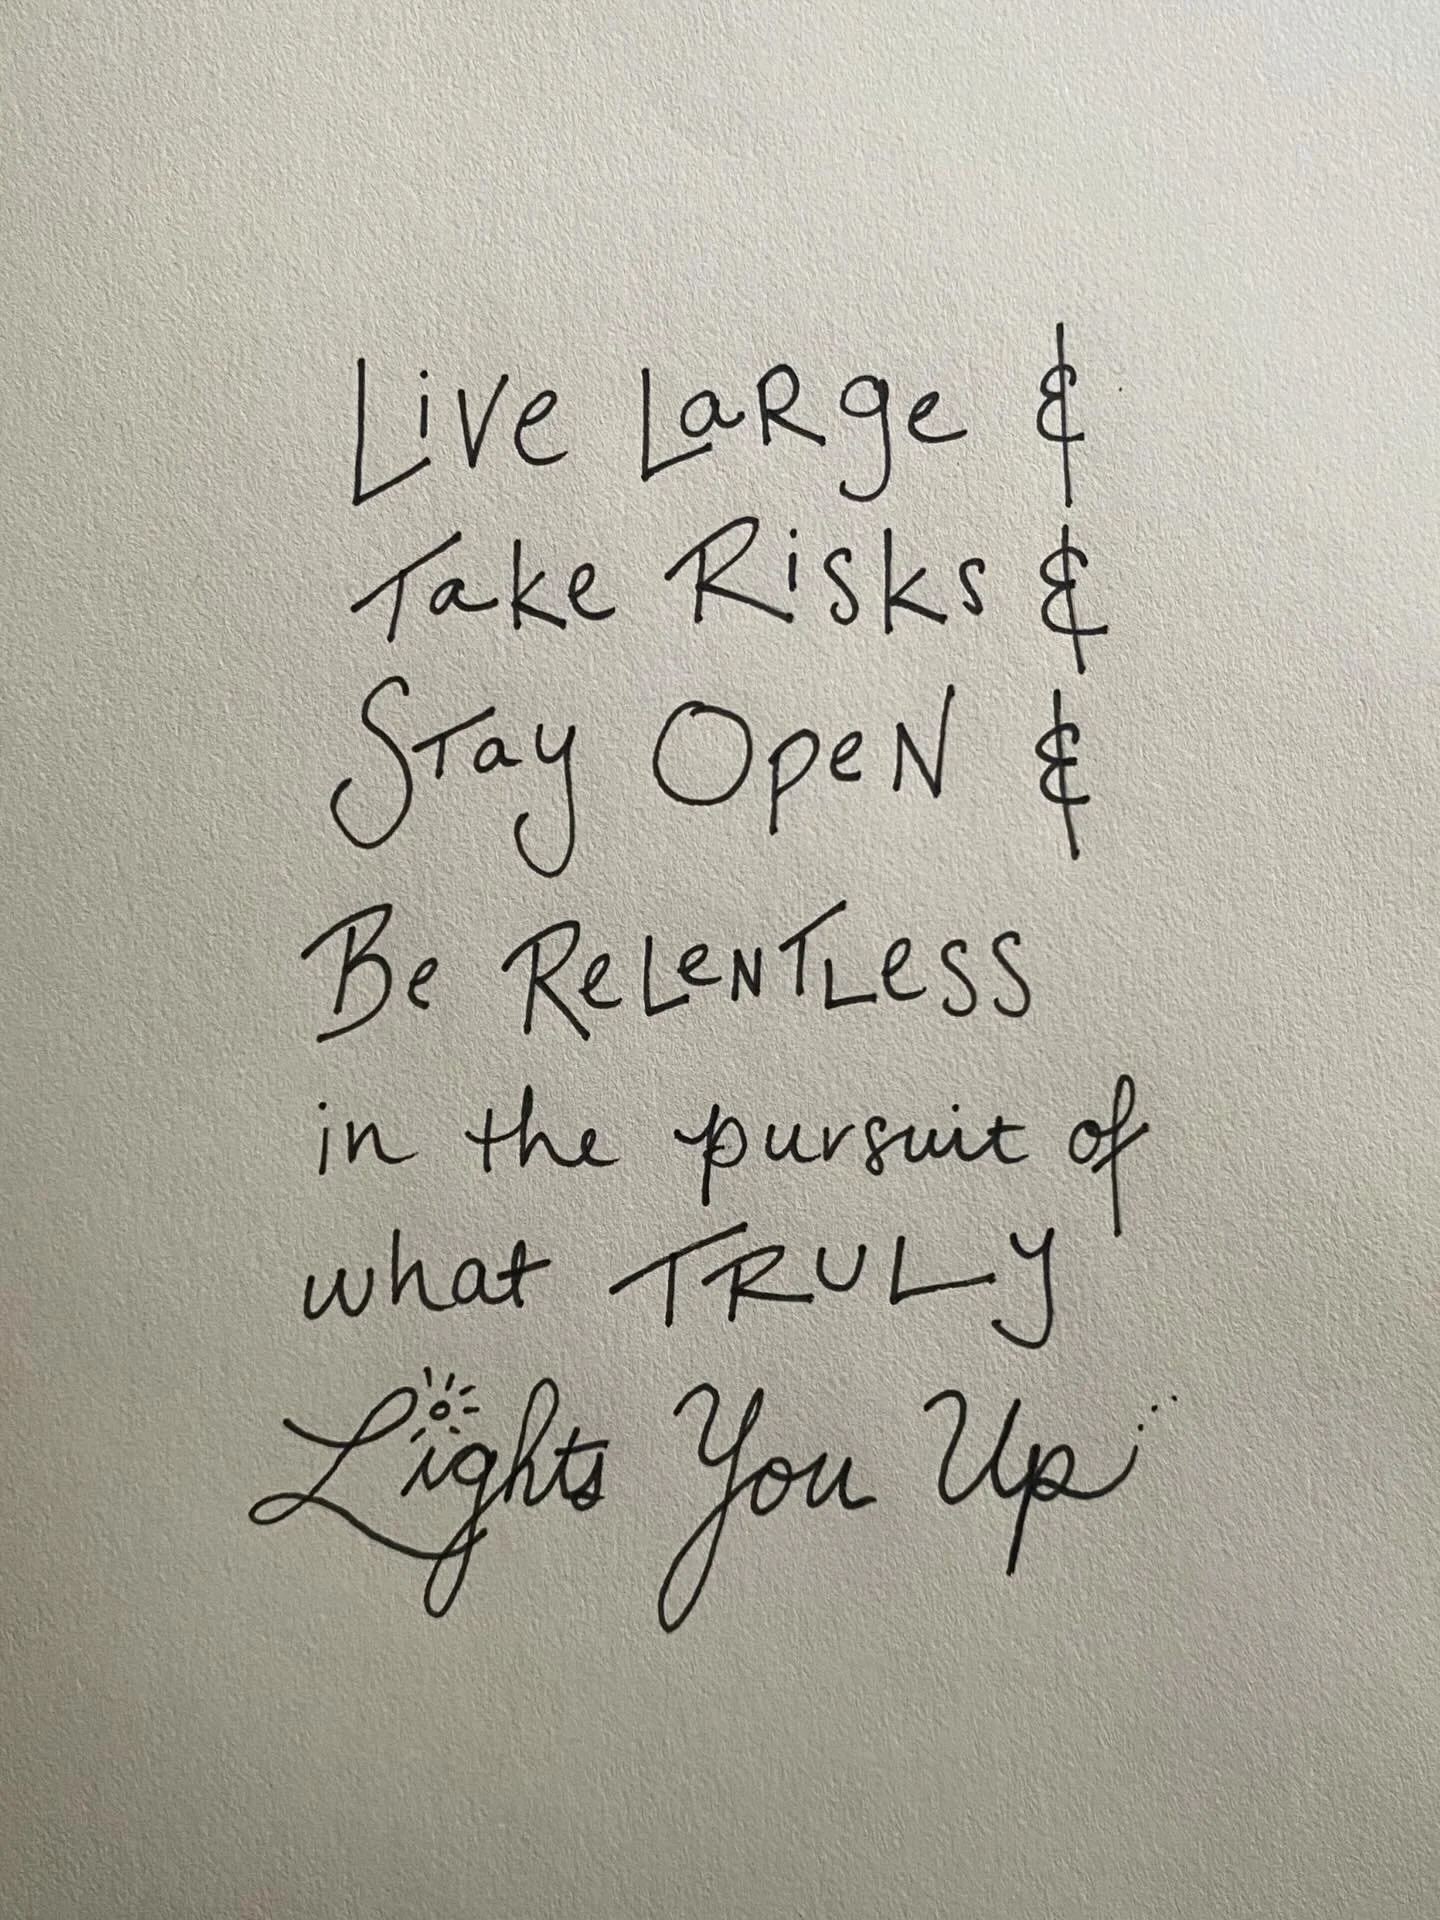 Live Large &
Take Risks &
Stay Open &
Be Relentless
in the pursuit of
what TRULY
Lights You Up